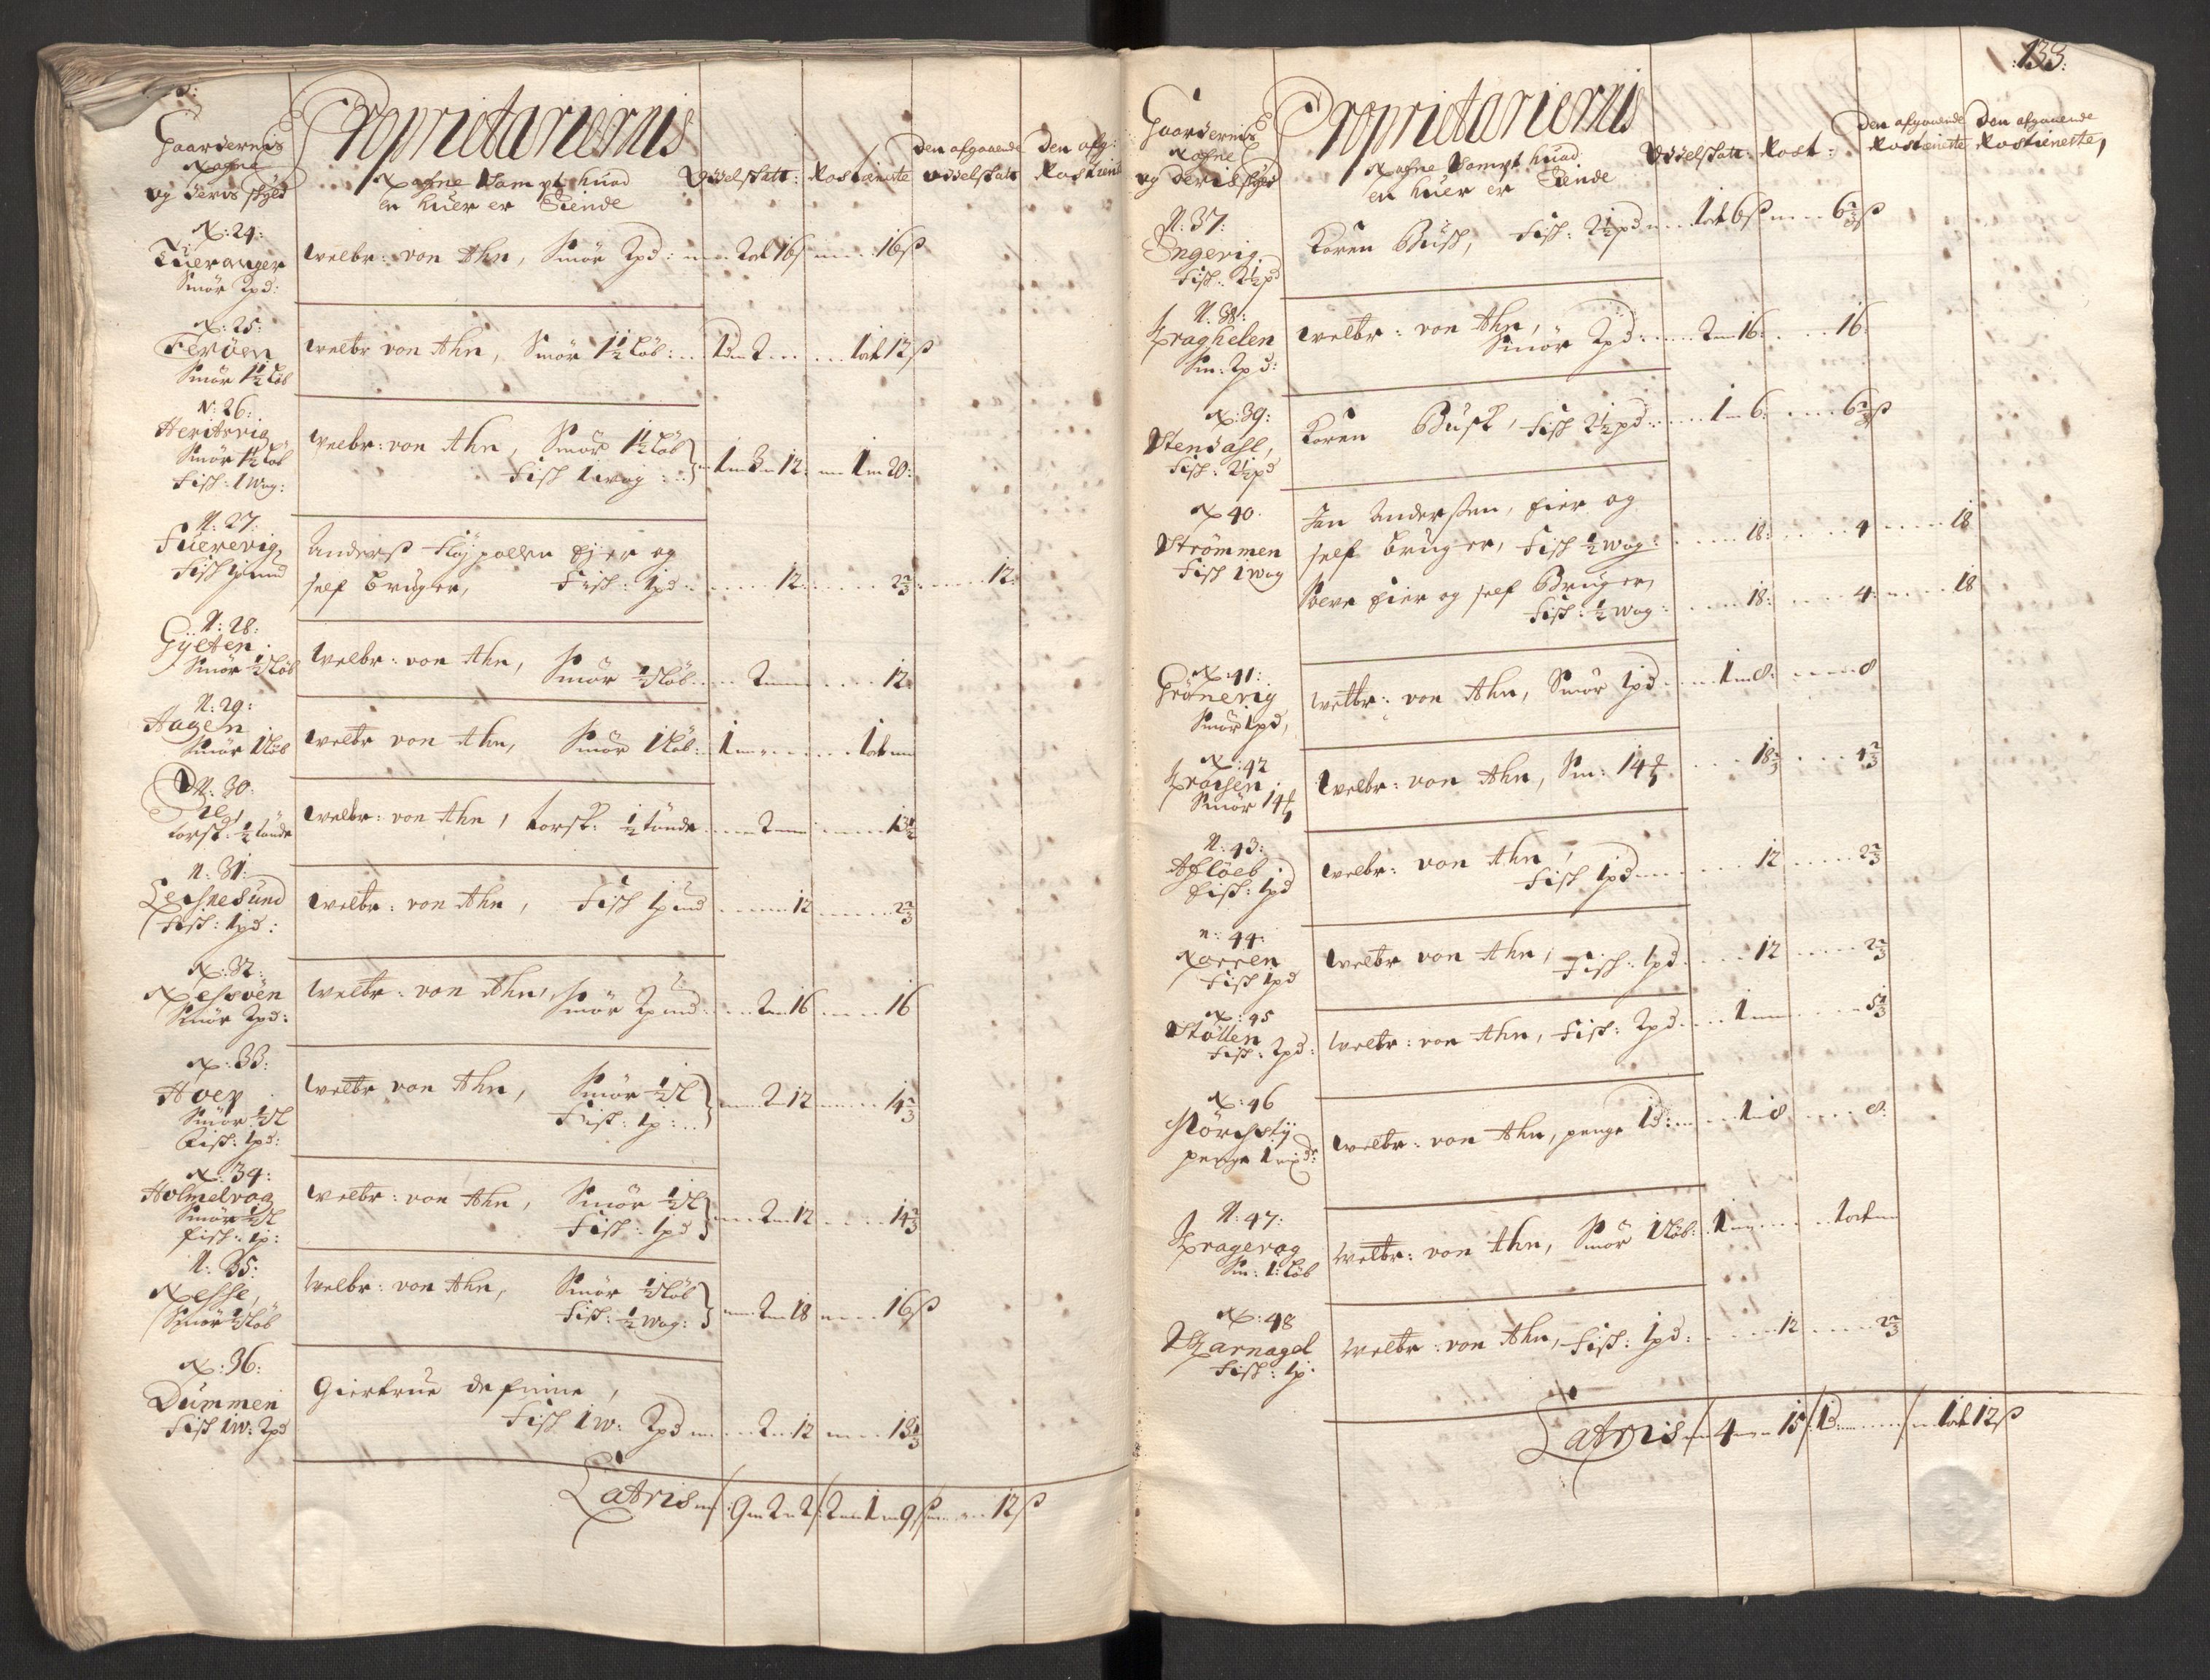 Gaardernis
Nafne
og deris skyld
Proprietariernis
Nafne Sampt huad
en huer er Eiende
Odelskatt:
Rostieniste
den afgaaende
odelskatt
den afg:
Rostienist
N: 24:
Tueranger
Smör 2pd:
welbr: von Ahn, Smör 2pd: 2ort 16 16ß
N: 25:
Feröen
Smör 1½ Löb
welbr von Ahn, Smör 1½ Löb: 1d 2 1ort 12ß
N: 26:
Smör 1½ Löb
Fisk: 1 Wog:
Welbr: von Ahn, Smör 1½ Löb
Fisk 1 wog 1 3 12: 1 20:
N: 27:
Fuerevig
Fisk 1pund
Anders Fløypollen Ejer og
self bruger, Fisk: 1pd: 12: 2⅔: 12:
N: 28:
Gylten
Smör ½ Löb
Welbr: von Ahn,
Smör ½ Löb 2 12
N: 29:
Hagen
Smör 1 Löb
welbr von Ahn, Smör 1 Löb: 1 1ort
N: 30:
torsk: ½ tönde
welbr: von Ahn, torsk: ½ tönde 2 13½
N: 31:
Leisnesund
Fisk: 1pd:
welbr: von Ahn, Fisk 1pund 12 2⅔
N: 32:
Nessöen
Smör 2pd:
welbr: von Ahn, Smör 2pund 2 16 16
N: 33:
Hoey
Smör ½ L
Fisk: 1pd:
welbr von Ahn, Smör ½ L
Fisk: 1p: 2 12 14⅔
N: 34:
Holmelvog
Smör ½ L
fisk: 1p:
welbr: von Ahn, Smör ½ L
Fisk: 1pd 2 12 14⅔
N: 35:
Nesse,
Smör ½ Löb
Welbr: von Ahn, Smör ½ Löb
Fisk: ½ Wog: 2 18 16ß
N: 36:
Dummen
Fisk 1w: 2pd
Giertrue de fine,
Fisk 1w: 2pd 2 12 13⅓
Latris 9 2 2 2 1 9ß 12ß
133:
Gaardernis
Nafne
og deris skyld
Proprietariernis
Nafne Sampt huad
en huer er Eiende
Odelskatt:
Rost:
den afgaaende
Rostieniste
den afgaaende
Rostieneste,
N: 37:
Ingevig
Fisk: 2½pd
Karen Busk, Fisk: 2½pd 1ort 6ß 6⅔ß
N: 38:
Kraghelen
Sm: 2pd:
welbr: von Ahn,
Smör 2pd: 2 16: 16:
N: 39:
Stendahl,
Fisk: 2½pd
Karen Busk, Fisk 2½pd: 1 6: 6⅔ß
N 40:
Strömmen
Fisk 1 wog
Jan Andersen, Eier og
self bruger, Fisk ½ wog: 18: 4 18
Sever Eier og self Bruger,
Fisk: ½ wog: 18: 4: 18
N: 41:
Grönevig
Smör 1pd,
welbr: von Ahn, Smör 1pd 1 8: 8
N: 42
Smör 14
welbr: von Ahn, Sm: 14 18⅔ 4⅔
N: 43:
Aflöeb
Fisk: 1pd
welbr: von Ahn,
Fisk 1pd 12 2⅔
N: 44:
Noreen
Fisk 1pd
welbr von Ahn, Fisk: 1pd 12 2⅔
N: 45
Stöllen
Fisk: 2pd:
Welbr: von Ahn, Fisk: 2pd 1 5⅓
N: 46
penge 1 rixdr:
welbr: von Ahn, penge 1d: 1 8 8:
N: 47:
Kragevog
Sm: 1: Löb
welbr: von Ahn, Smör 1 Löb: 1 1ort
N: 48
Skarnagel
Fisk: 1p:
welbr: von Ahn, Fisk: 1pd: 12 2⅔
Latris 4 15 1d 1ort 12ß